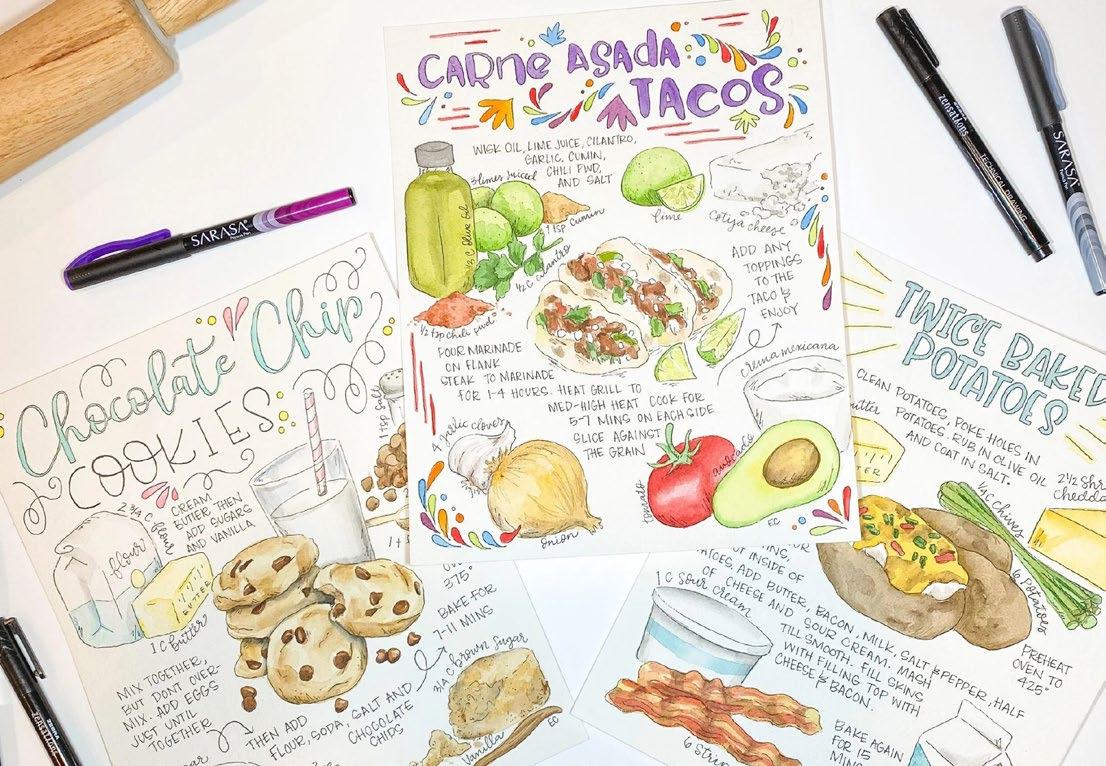 CARNE ASADA
TACOS
WISK OIL, LIME JUICE, CILANTRO,
GARLIC, CUMIN,
CHILI PWD,
AND SALT
3 limes juiced
1 tsp cumin
1/3 C olive oil
1/2 C cilantro
1/2 tsp chili pwd
lime
Cotija cheese
ADD ANY
TOPPINGS
TO THE
TACO &
ENJOY
crema mexicana
POUR MARINADE
ON FLANK
STEAK TO MARINADE
FOR 1-4 HOURS. HEAT GRILL TO
MED-HIGH HEAT COOK FOR
5-7 MINS ON EACH SIDE
SLICE AGAINST
THE GRAIN
4 garlic cloves
onion
tomato
avocado
EC
SARASA
zensations
TECHNICAL DRAWING
SARASA
Chocolate Chip
COOKIES
1 tsp Salt
2 3/4 C flour
flour
CREAM
BUTTER THEN
ADD SUGARS
AND VANILLA
BUTTER
1 C butter
375°
BAKE FOR
7-11 MINS
3/4 C brown sugar
MIX TOGETHER,
BUT DONT OVER-
MIX. ADD EGGS
JUST UNTIL
TOGETHER
THEN ADD
FLOUR, SODA, SALT AND
CHOCOLATE
CHIPS
Vanilla
EC
TWICE BAKED
POTATOES
CLEAN POTATOES, POKE HOLES IN
POTATOES. RUB IN OLIVE OIL
AND COAT IN SALT.
1/4 C chives
6 Potatoes
PREHEAT
OVEN TO
425°
OF INSIDE OF
ADD BUTTER, BACON, MILK, SALT & PEPPER, HALF
OF CHEESE AND SOUR CREAM. MASH
TILL SMOOTH. FILL SKINS
WITH FILLING TOP WITH
CHEESE & BACON.
1 C sour cream
BAKE AGAIN
FOR 15
MINS
zensations